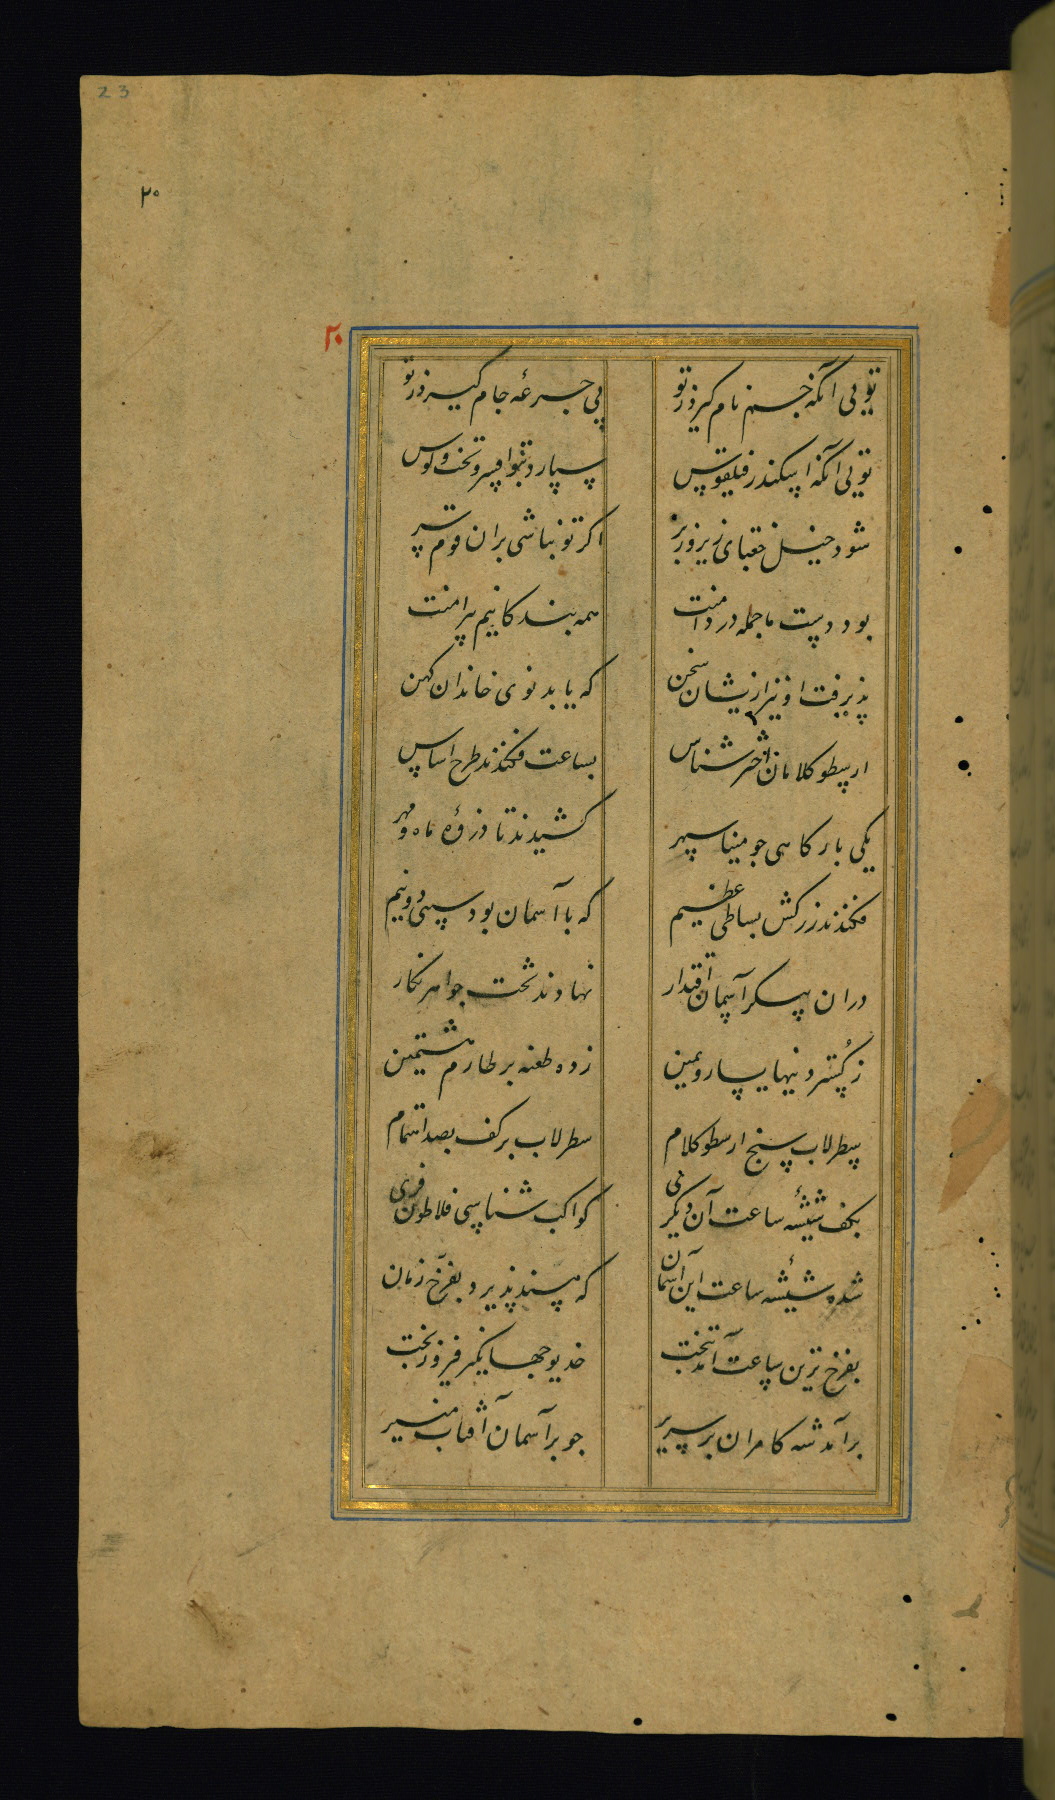 23
۲۰
۲۰
تویی آنکه جم نام کیرد ز تو
پی جرعهٔ جام کیرد ز تو
تویی آنکه اسکندر فیلقوس
سپارد بتو افسر و تخت و کوس
شود خیل جغتای زیر و زبر
اکر تو نباشی بران قوم سر
بود دست ما جمله در دامنت
همه بندکانیم پیرامنت
پذیرفت او نیز ازیشان سخن
که یابد نوی خاندان کهن
ارسطو کلامان اختر شناس
بساعت فکندند طرح اساس
یکی بارکاهی جو مینا سپهر
کشیدند تا ذروهٔ ماه و مهر
فکندند زرکش بساطی عظیم
که با آسمان بود سیبی دو نیم
دران پیکر آسمان اقتدار
نهادند تخت جواهر نکار
ز کستردنیها یسار و یمین
زده طعنه بر طارم هشتمین
سطرلاب سنج ارسطو کلام
سطرلاب بر کف بصد اهتمام
بکف شیشهٔ ساعت آن دیکری
کواکب شناسی فلاطون فری
شده شیشهٔ ساعت این آسمان
که مسند پذیرد بفرّخ زمان
بفرخ ترین ساعت آمد بتخت
خدیو جهانکیر فیروز بخت
برآمد شه کامران بر سریر
جو بر آسمان آفتاب منیر